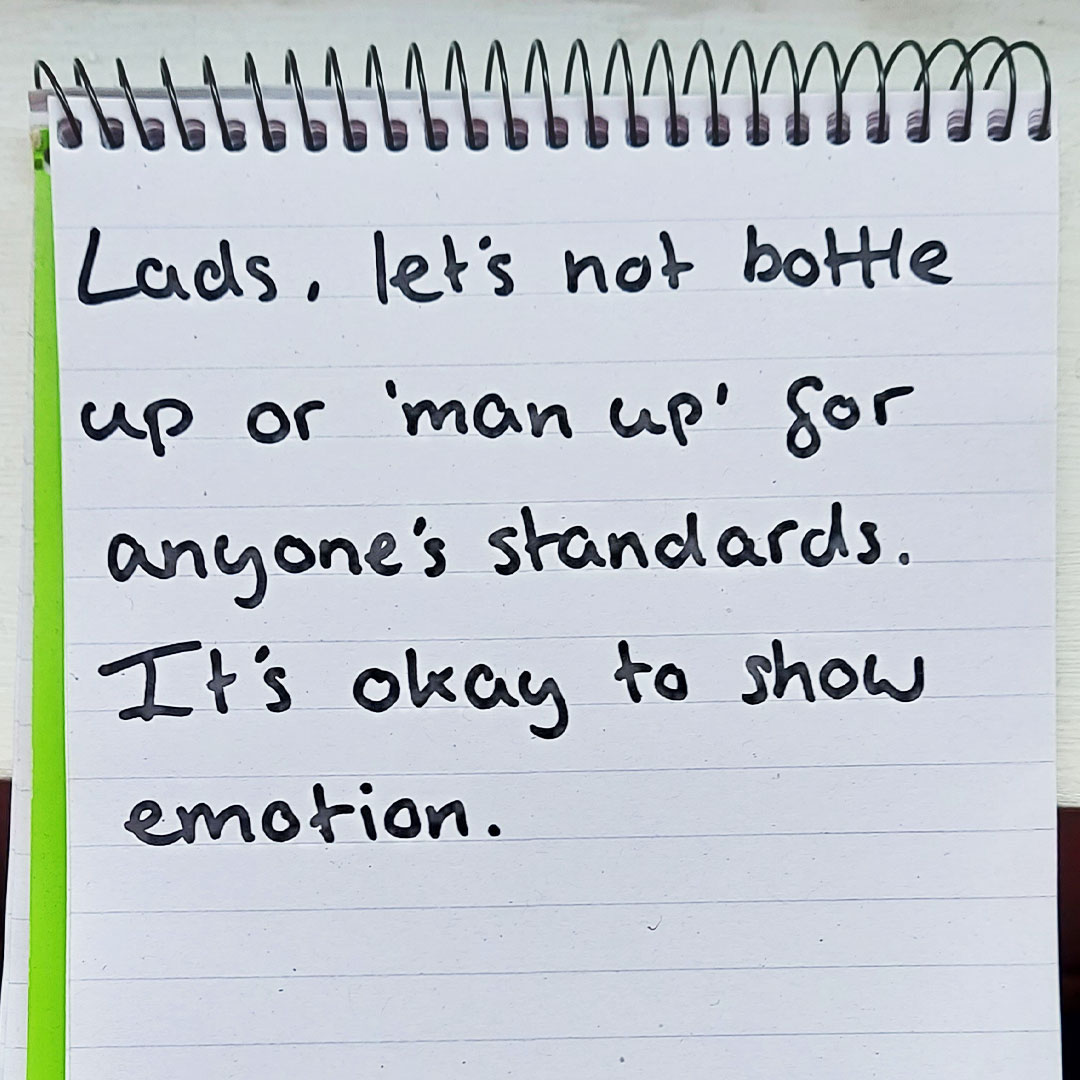 Lads, let's not bottle
up or 'man up' for
anyone's standards.
It's okay to show
emotion.